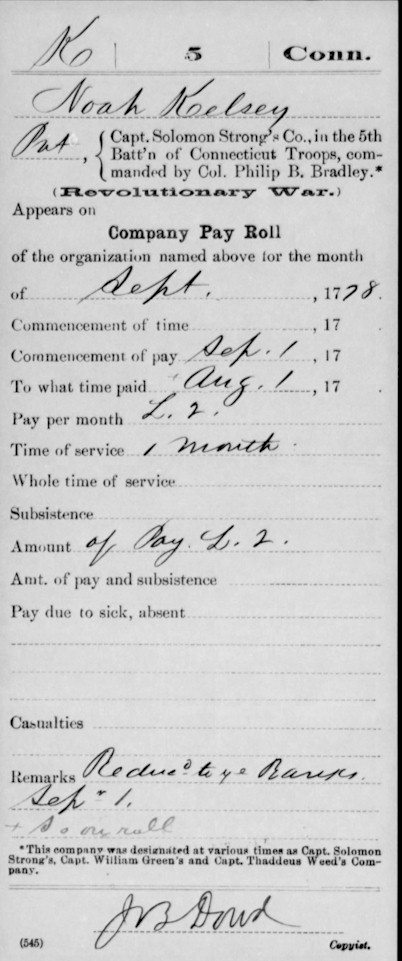 K | 5 | Conn.
Noah Kelsey
Pvt, { Capt. Solomon Strong's Co., in the 5th
Batt'n of Connecticut Troops, com-
manded by Col. Philip B. Bradley.*
(Revolutionary War.)
Appears on
Company Pay Roll
of the organization named above for the month
of Sept., 1778.
Commencement of time, 17 .
Commencement of pay Sep. 1, 17 .
To what time paid Aug. 1, 17 .
Pay per month L. 2.
Time of service 1 month.
Whole time of service
Subsistence
Amount of Pay. L. 2.
Amt. of pay and subsistence
Pay due to sick, absent
Casualties
Remarks Reduc'd to ye Ranks.
Sepr 1.
+ So on roll
*This company was designated at various times as Capt. Solomon
Strong's, Capt. William Green's and Capt. Thaddeus Weed's Com-
pany.
J B Dowd
(545) Copyist.